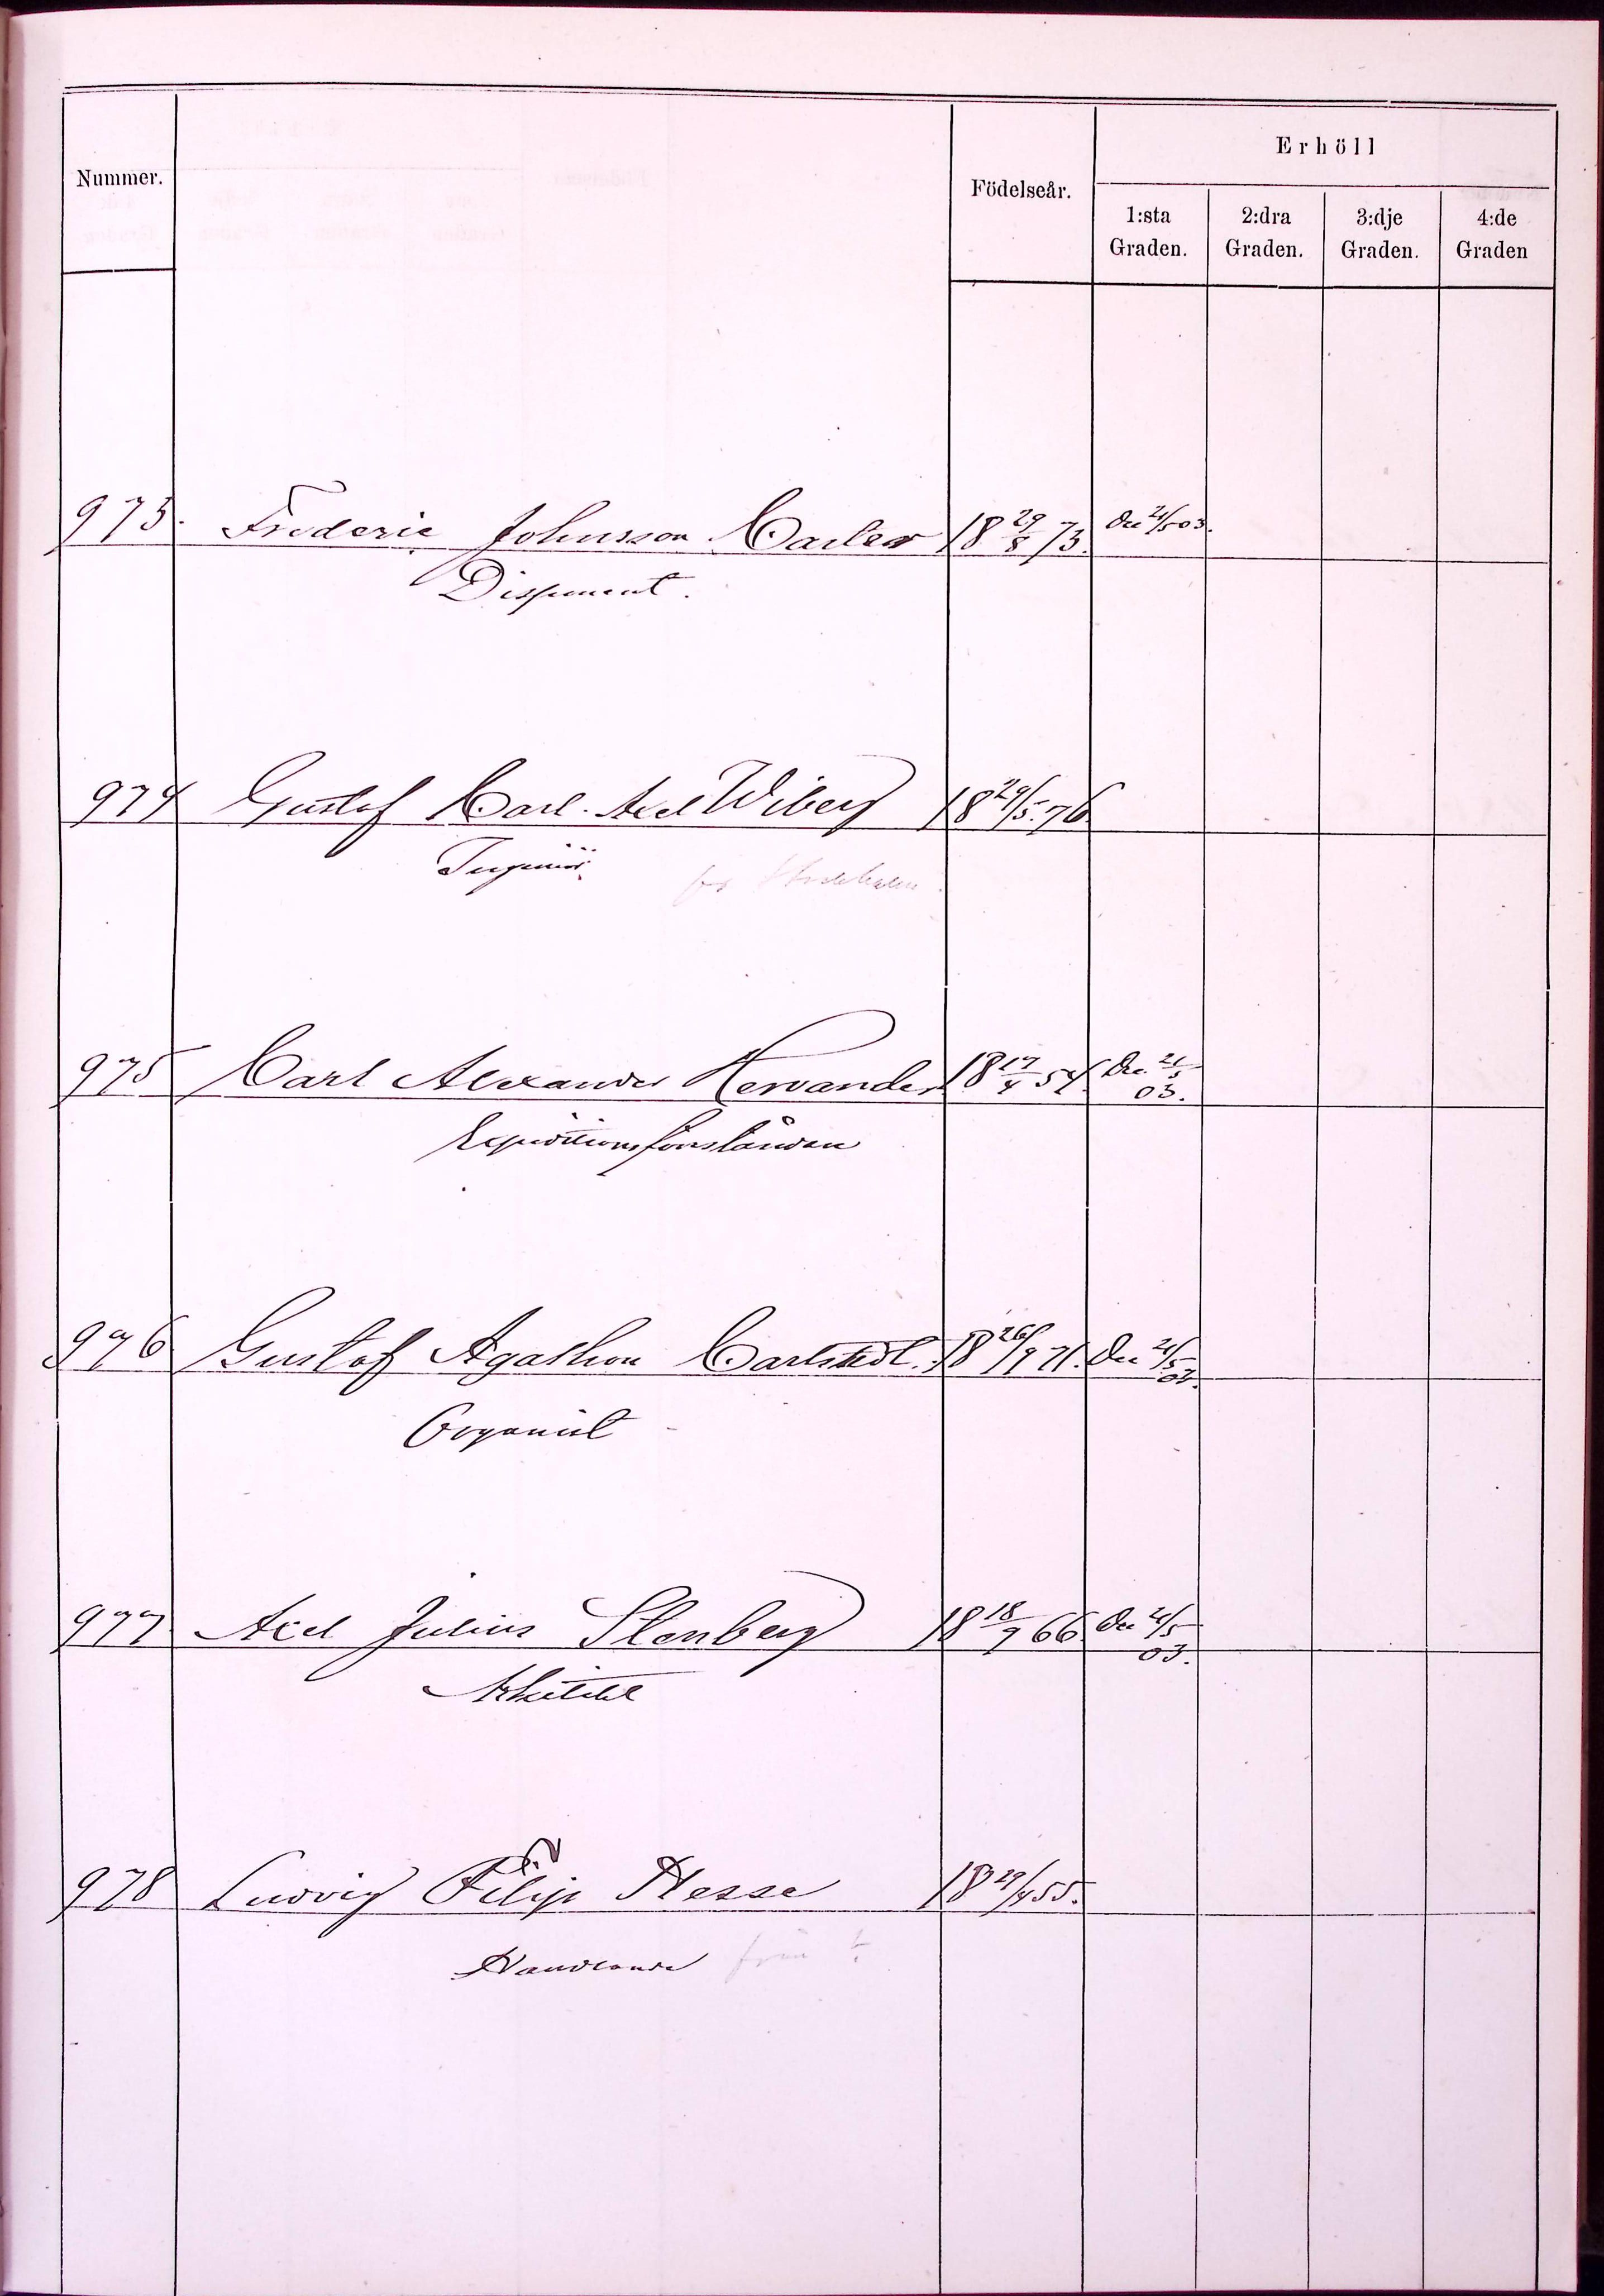 Nummer.
Födelseår.
Erhöll
1:sta Graden.
2:dra Graden.
3:dje Graden.
4:de Graden
973. Frederic Johnsson Carler 18 29/8 73. Den 21/5 03.
Disponent.
974 Gustaf Carl Axel Wiberg 18 29/5. 76
Ingeniör.
975 Carl Alexander Hervander 18 17/4 54. Den 21/5 03.
Expeditionsföreståndare
976 Gustaf Agathon Carlstedt. 18 26/9 71. Den 21/5 03.
Organist
977 Axel Julius Stenberg 18 18/9 66 Den 21/5 03.
Arkitekt
978 Ludvig Filip Hesse 18 29/4 55.
Handlande från